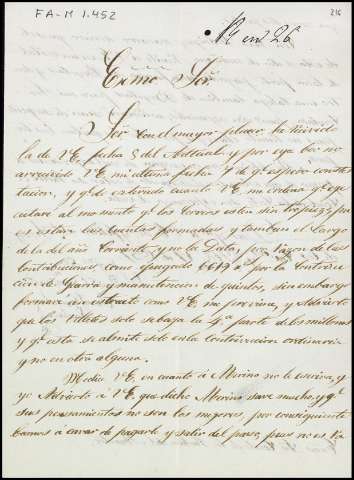 FA-M 1.452
216
R en 26
Exmo Sor.
Sor. Con el mayor placer he recivido
la de V.E. fecha 5 del Actual y por ella veo no
a recivido V.E. mi ultima fecha 7 de qe. espero contes
tacion, y qe. de enterado cuanto V.E. me ordena qe. eje
cutare al momento qe. los Correos esten sin tropiezo, pr.
es estar las Cuentas formadas y tambien el Cargo
de la del año Corriente, y no la Data, por razon de las
Contribuciones, como Juzgado por la Contribu
cion de Guerra y manutencion de quintos, sin embargo
formaré un estracto como V.E. me previene, y Advierto
que los Villetes solo se baja la 4.ª parte de los millones
y qe. esta se admite solo en la Contribucion ordinaria
y no en otra alguna.
Me dice V.E. en cuanto á Merino no le escriva, y
yo Advierto á V.E. que dicho Merino save mucho, y qe.
sus pensamientos no son los mejores, por consiguiente
bamos á tratar de pagarle y salir del paso, pues no es ra